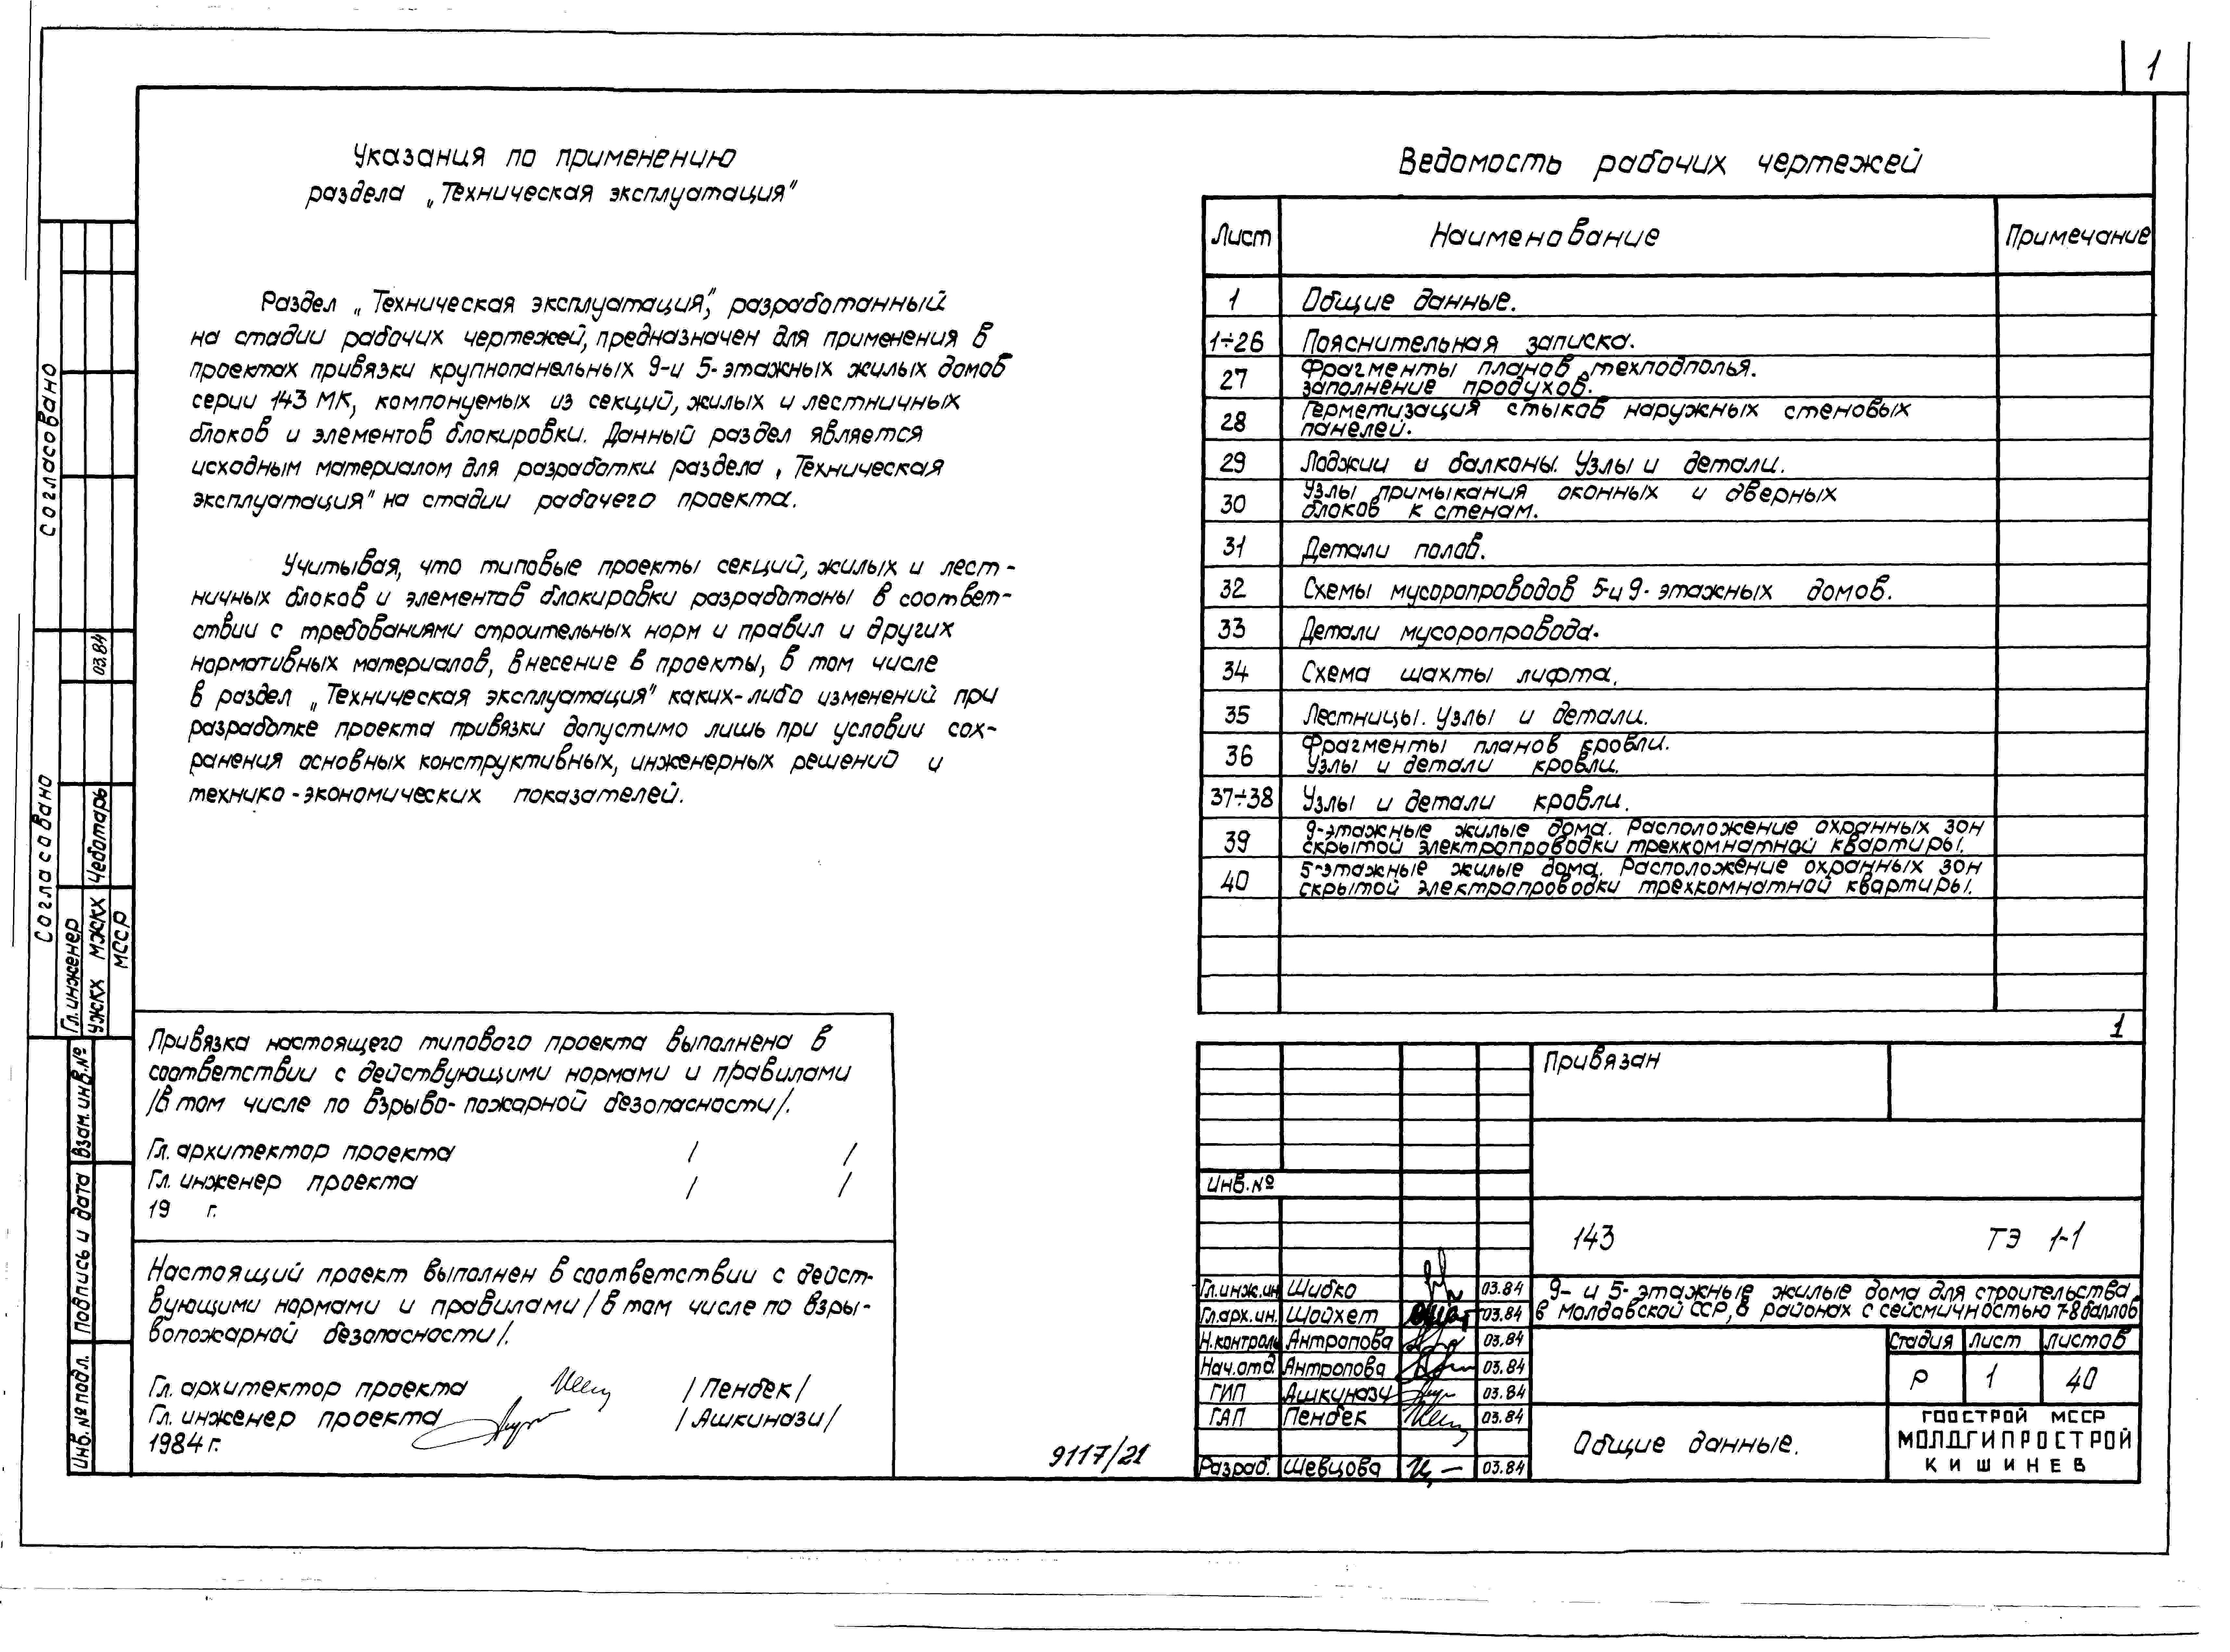 1
Указания по применению
раздела „Техническая эксплуатация"
Раздел „Техническая эксплуатация", разработанный
на стадии рабочих чертежей, предназначен для применения в
проектах привязки крупнопанельных 9-и 5-этажных жилых домов
серии 143 МК, компонуемых из секций, жилых и лестничных
блоков и элементов блокировки. Данный раздел является
исходным материалом для разработки раздела „Техническая
эксплуатация" на стадии рабочего проекта.
Учитывая, что типовые проекты секций, жилых и лест-
ничных блоков и элементов блокировки разработаны в соответ-
ствии с требованиями строительных норм и правил и других
нормативных материалов, внесение в проекты, в том числе
в раздел „Техническая эксплуатация" каких-либо изменений при
разработке проекта привязки допустимо лишь при условии сох-
ранения основных конструктивных, инженерных решений и
технико-экономических показателей.
Привязка настоящего типового проекта выполнена в
соответствии с действующими нормами и правилами
/в том числе по взрыво-пожарной безопасности/.
Гл. архитектор проекта / /
Гл. инженер проекта / /
19 г.
Настоящий проект выполнен в соответствии с дейст-
вующими нормами и правилами /в том числе по взры-
вопожарной безопасности/.
Гл. архитектор проекта /Пендек/
Гл. инженер проекта /Ашкинази/
1984 г.
9117/21
Ведомость рабочих чертежей
Лист Наименование Примечание
1 Общие данные.
1÷26 Пояснительная записка.
27 Фрагменты планов техподполья.
заполнение продухов.
28 Герметизация стыков наружных стеновых
панелей.
29 Лоджии и балконы. Узлы и детали.
30 Узлы примыкания оконных и дверных
блоков к стенам.
31 Детали полов.
32 Схемы мусоропроводов 5-и 9-этажных домов.
33 Детали мусоропровода.
34 Схема шахты лифта.
35 Лестницы. Узлы и детали.
36 Фрагменты планов кровли.
Узлы и детали кровли.
37÷38 Узлы и детали кровли.
39 9-этажные жилые дома. Расположение охранных зон
скрытой электропроводки трехкомнатной квартиры.
40 5-этажные жилые дома. Расположение охранных зон
скрытой электропроводки трехкомнатной квартиры.
1
Привязан
Инв.№
143 ТЭ 1-1
Гл.инж.ин Шибко 03.84
Гл.арх.ин. Шойхет 03.84
Н.контроль Антропова 03.84
Нач.отд Антропова 03.84
ГИП Ашкинази 03.84
ГАП Пендек 03.84
Разраб. Шевцова 03.84
9- и 5-этажные жилые дома для строительства
в Молдавской ССР, в районах с сейсмичностью 7-8 баллов
Стадия Лист Листов
Р 1 40
Общие данные.
ГОССТРОЙ МССР
МОЛДГИПРОСТРОЙ
КИШИНЕВ
Согласовано
Согласовано
Гл. инженер
УЖКХ МЖКХ Чеботарь 03.84
МССР
Взам.инв.№
Подпись и дата
Инв.№ подл.